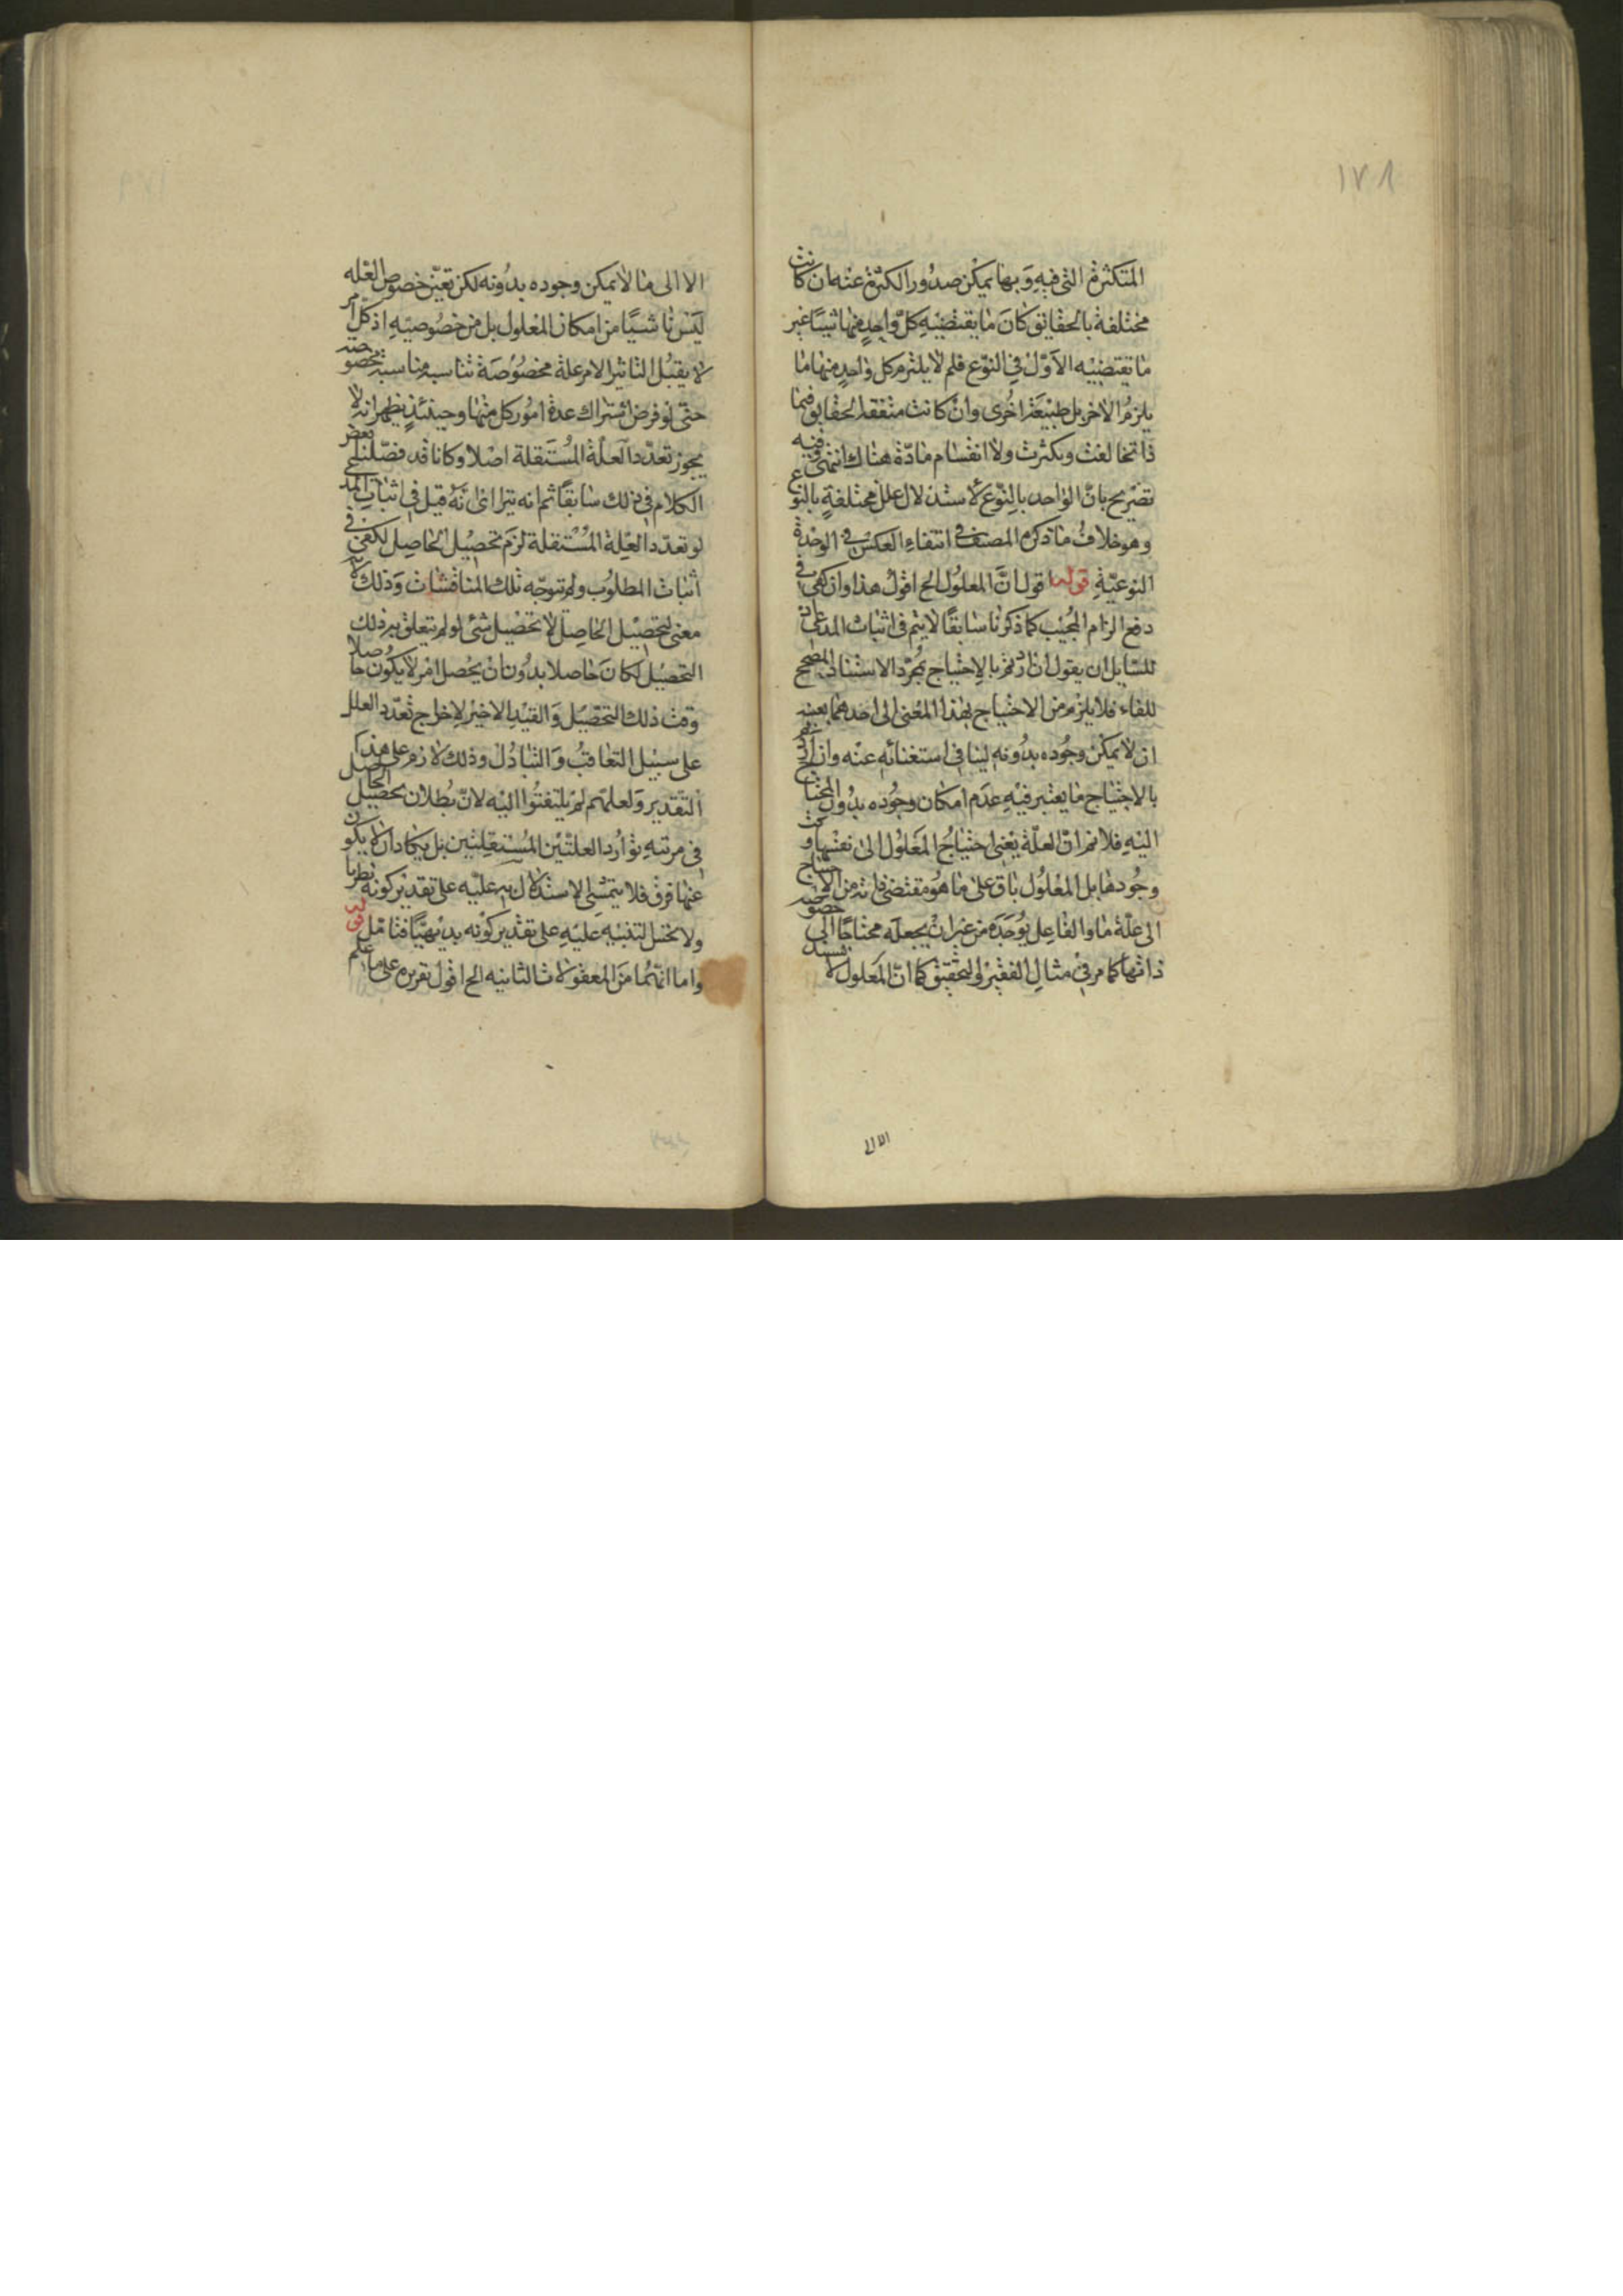 ١٧٨
المتكثرة التى فيه وبها يمكن صدور الكثرة عنه ان كانت
مختلفة بالحقايق كان ما يقتضيه كل واحد منها شيئا غير
ما يقتضيه الاول فى النوع فلم لا يلتزم كل واحد منها ما
يلزم الاخر بل طبيعة اخرى وان كانت متفقه الحقايق فبما
ذا تخالفت وتكثرت ولا انقسام مادة هناك انتهى وفيه
تصريح بان الواحد بالنوع لا يستند لا الى علل مختلفة بالنوع
وهو خلاف ما ذكره المصنف فى انتفاء العكس فى الوحدة
النوعية قوله قول ان المعلول الخ اقول هذا وان كفى فى
دفع الزام المجيب كما ذكرنا سابقا لا يتم فى اثبات المدعى اذ
للسايل ان يقول ان اردتم بالاحتياج مجرد الاستناد المصحح
للفاء فلا يلزم من الاحتياج بهذا المعنى الى احدهما بعينه
ان لا يمكن وجوده بدونه لينافى استغنائه عنه وان اردتم
بالاحتياج ما يعتبر فيه عدم امكان وجوده بدون المحتاج
اليه فلا نم ان العلة يعنى احتياج المعلول الى نفسها و
وجودها بل المعلول باق على ما هو مقتضى ذاته من الاحتياج
الى علة ما والفاعل يوجده من غير ان يجعله محتاجا الى خصوصية
ذاتها كما مر فى مثال الفقير والتحقيق كما ان المعلول لا يستند
الا الى
الا الى ما لا يمكن وجوده بدونه لكن تعين خصوص العله
ليس ناشيا من امكان المعلول بل من خصوصيته اذ كل امر
لا يقبل التاثير الا من علة مخصوصة تناسبه مناسبة مخصوصة
حتى لو فرض اشتراك عدة امور كل منها وحينئذ يظهر انه لا
يجوز تعدد العلة المستقلة اصلا وكانا قد فصلنا بعض
الكلام فى ذلك سابقا ثم انه يتراى انه قيل فى اثبات المدعى
لو تعدد العلة المستقلة لزم تحصيل الحاصل لكفى فى
اثبات المطلوب ولم تتوجه تلك المناقشات وذلك لانه لا
معنى لتحصيل الحاصل الا تحصيل شئ لو لم يتعلق به ذلك
التحصيل لكان حاصلا بدون ان يحصل امر لا يكون حاصلا
وقت ذلك التحصيل والقيد الاخير لاخراج تعدد العلل
على سبيل التعاقب والتبادل وذلك لازم على هذا
التقدير ولعلهم لم يلتفتوا اليه لان بطلان تحصيل الحاصل
فى مرتبه توارد العلتين المستقلتين بل يكاد ان لا يكون
عنها فرق فلا يتمشى الاستدلال به عليه على تقدير كونه نظريا
ولا تخيل لتنبيه عليه على تقدير كونه بديهيا فتامل قوله
واما انهما من المعقولات الثانيه الخ اقول تقريره على ما علم